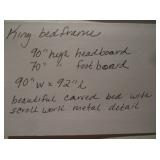 King bedframe
90" high headboard
70" " footboard
90" w x 92" l
beautiful carved bed with
scroll work metal detail